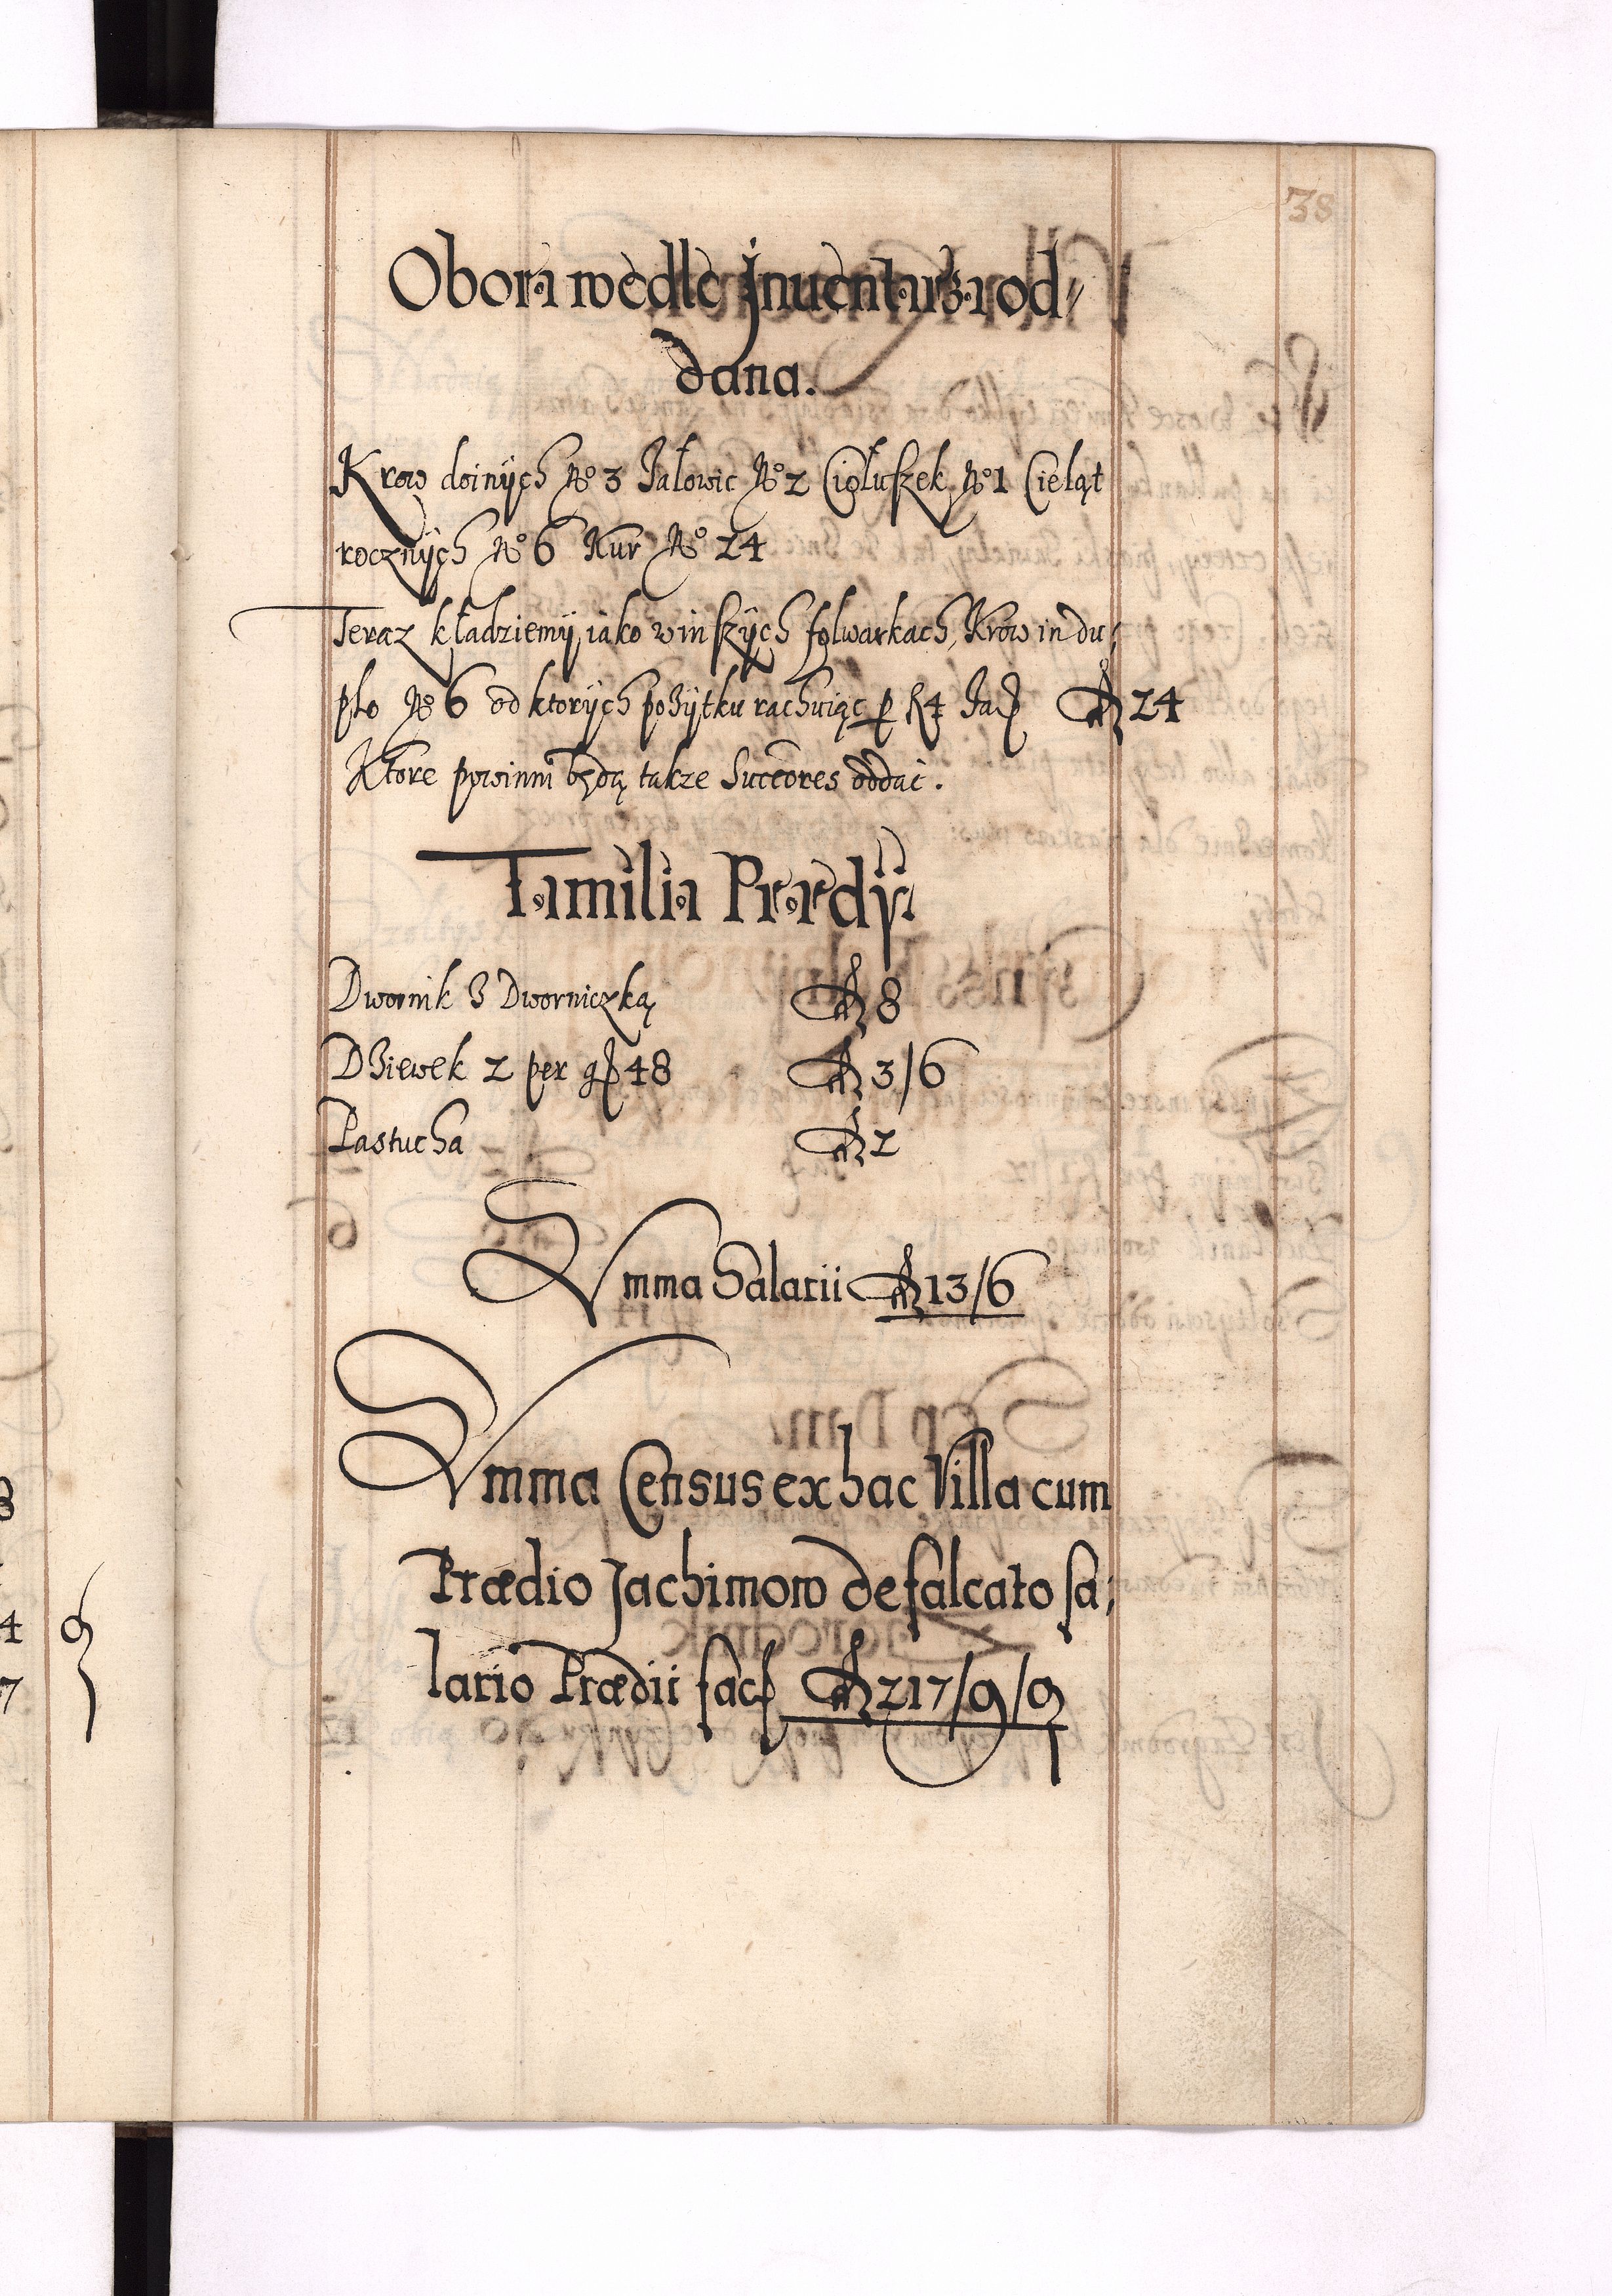 38
Obora wedle Jnuentarza od⸗
dana.
Krow doinÿch No 3 Jałowic No 2 Ciołuszek No 1 Cieląt
rocznÿch No 6 Kur No 24
Teraz kładziemÿ, iako w inszÿch folwarkach, Krow in du⸗
plo No 6 od ktorÿch pożÿtku rachuiąc per f 4 facit f 24
Ktore powinni będą takze Succores oddać.
Familia Prædÿ.
Dwornik z Dworniczką f 8
Dziewek 2 per gr 48 f 3/6
Pastucha f 2
Summa Salarii f 13/6
Summa Census ex hac Villa cum
Prædio Jachimow defalcato sa⸗
lario Prædii facit f 217/9/9